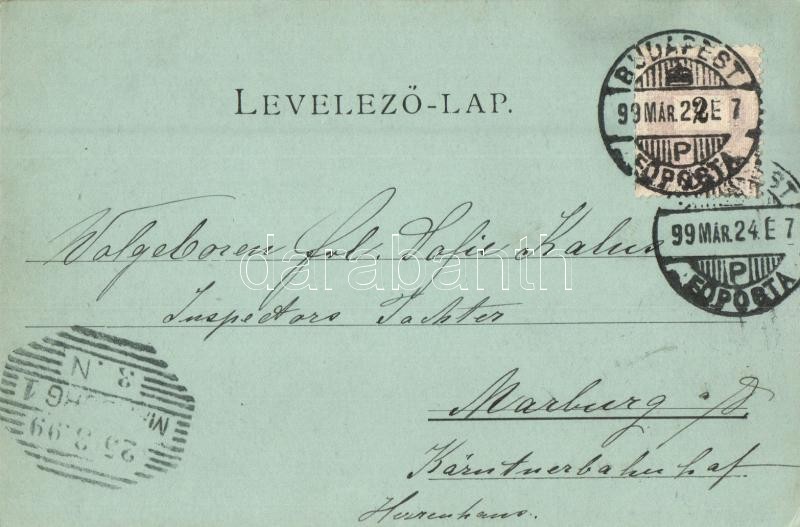 LEVELEZŐ-LAP.
BUDAPEST
99 MÁR. 24 E 7
P
FŐPOSTA
2
99 MÁR. 24. E 7
P
FŐPOSTA
Volgeboren frl. Sofie Kalus
darabanth
Inspectors Tochter
Marburg a/D
Kärntnerbahnhof
Herrenhaus.
3. N
25.3.99